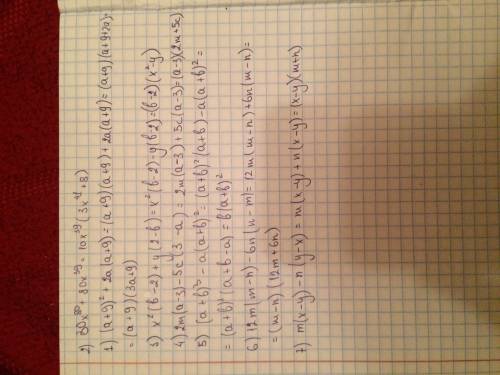 2) 30x⁸⁰ + 80x³⁹ = 10x³⁹ (3x⁴¹ + 8)
1) (a+9)² + 2a(a+9) = (a+9)(a+9) + 2a(a+9) = (a+9)(a+9+2a) =
= (a+9)(3a+9)
3) x²(b-2) + y(2-b) = x²(b-2) - y(b-2) = (b-2)(x²-y)
4) 2m(a-3) - 5c(3-a) = 2m(a-3) + 5c(a-3) = (a-3)(2m+5c)
5) (a+b)³ - a(a+b)² = (a+b)²(a+b) - a(a+b)² =
= (a+b)²(a+b-a) = b(a+b)²
6) 12m(m-n) - 6n(n-m) = 12m(m-n) + 6n(m-n) =
= (m-n)(12m+6n)
7) m(x-y) - n(y-x) = m(x-y) + n(x-y) = (x-y)(m+n)